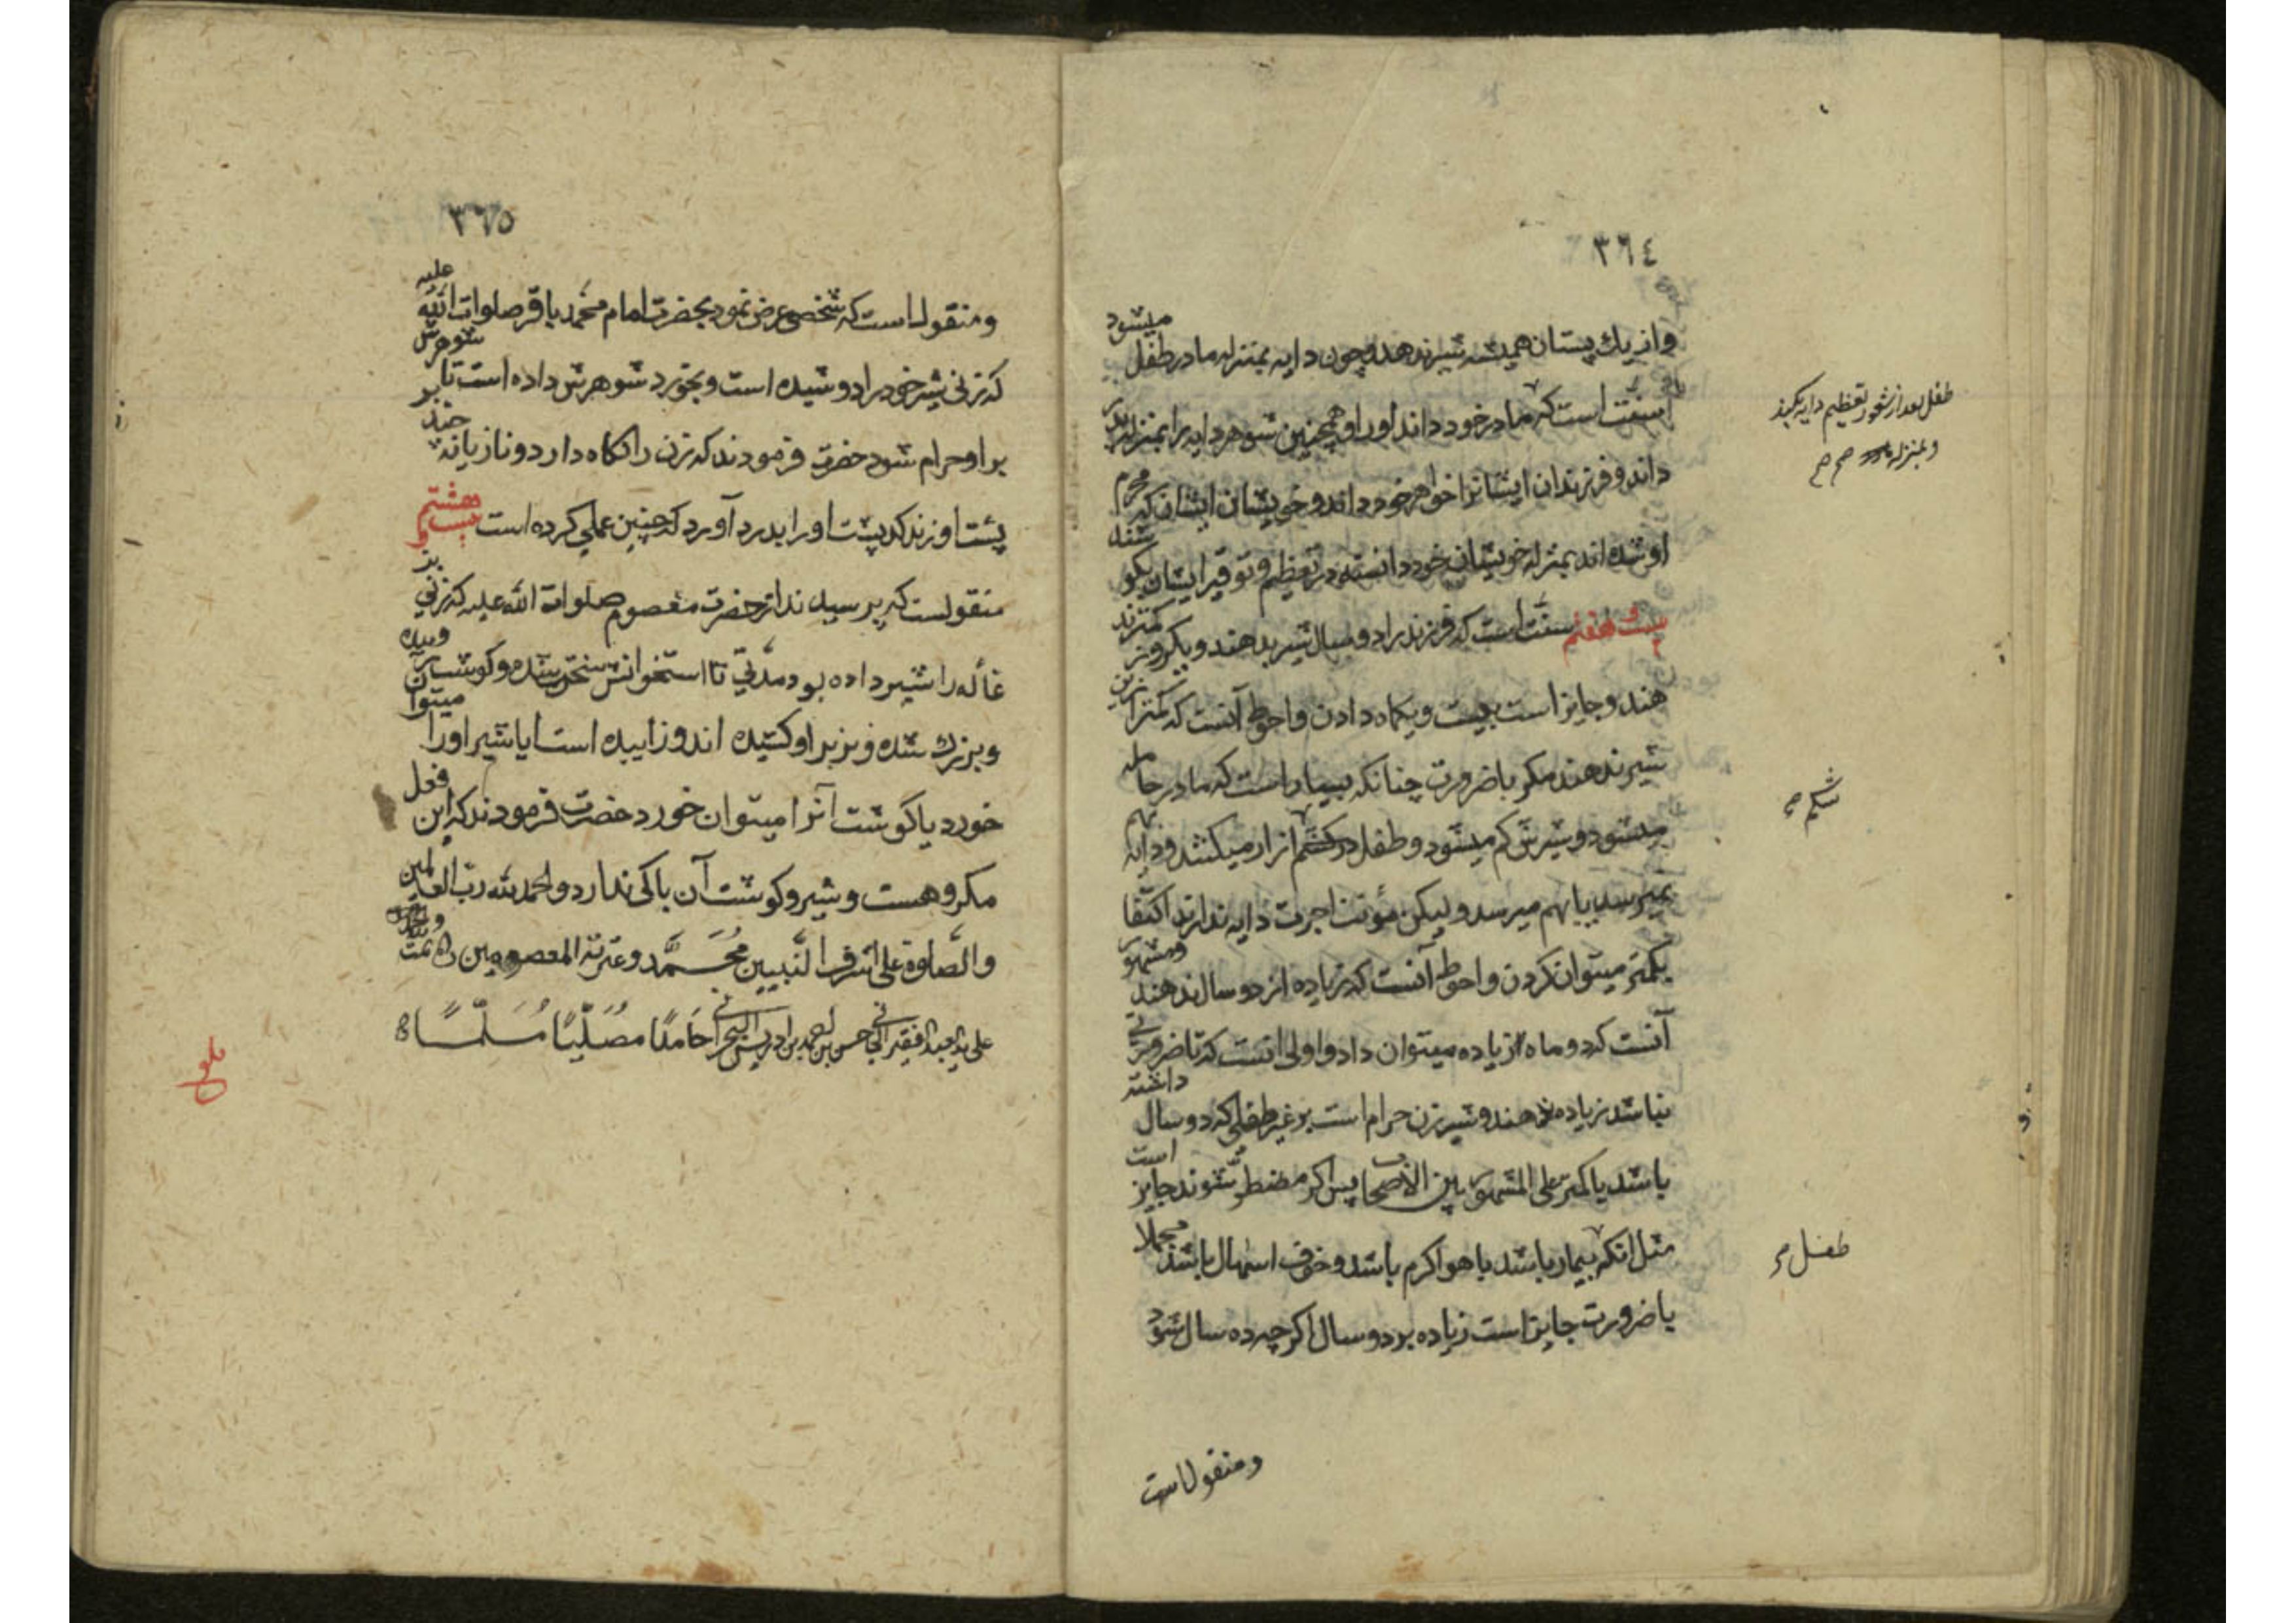 ٣٦٤
واز یك پستان همیشه شیر ندهد و چون دایه بمنزله مادر طفل میشود
سنّت است که مادر خود داند او را و همچنین شوهر دایه را بمنزله پدر
داند و فرزندان ایشانرا خواهر خود داند و خویشان ایشان که محرم
او شده اند بمنزله خویشان خود دانسته در تعظیم و توقیر ایشان بکوشند
بیست و هفتم سنّت است که فرزند را دو سال شیر بدهند و یکروز کمتر ند
هند و جایز است بیست و یکماه دادن و احوط آنست که کمتر ازین
شیر ندهند مگر با ضرورت چنانکه بسیار است که مادر حامله
میشود و شیرش کم میشود و طفل در شکم ازار میکشد و دایه بهم
نمیرسد یا بهم میرسد و لیکن مؤنت اجرت دایه ندارند اکتفا
بکمتر میتوان کردن و احوط آنست که زیاده از دو سال ندهند و مشهور
آنست که دو ماه زیاده میتوان داد و اولی انست که تا ضرورتی
نباشد زیاده ندهند و شیر زن حرام است بر غیر طفلی که دو سال داشته
باشد یا کمتر علی المشهور بین الأصحاب پس اکر مضطر شوند جایز است
مثل انکه بیمار باشد یا هوا کرم باشد و خوف اسهال باشد مجملا
با ضرورت جایز است زیاده بر دو سال اکرچه ده سال شود
و منقولست
طفل بعد از شعور تعظیم دایه بکند
و بمنزله صح
شکم
طفل
٣٦٥
و منقولست که شخصی عرض نمود بحضرت امام محمد باقر صلوات الله علیه
که زنی شیر خود را دوشیده است و بخورد شوهرش داده است تا شوهرش بر
بر او حرام شود حضرت فرمودند که زن را نکاه دارد و تازیانه چند
پشت او زند که پشت او را بدرد آورد که چنین عملی کرده است بیست و هشتم
منقولست که پرسیدند از حضرت معصوم صلوات الله علیه که زنی بز
غاله را شیر داده بود مدتی تا استخوانش سخت شده و کوشتش بر آن روییده
و بزرك شده و بز بر او کشیده اند و زاییده است ایا شیر او را میتوان
خورد یا گوشت آنرا میتوان خورد حضرت فرمودند که این فعل
مکروهست و شیر و کوشت آن باکی ندارد و الحمد لله رب العالمین
والصلوة علی اشرف النبیین محمد و عترته المعصومین تمت
علی ید العبد الفقیر الجانی حسن بن احمد بن ادریس البحرانی حامدًا مصلّیًا مسلّمًا
بلغ